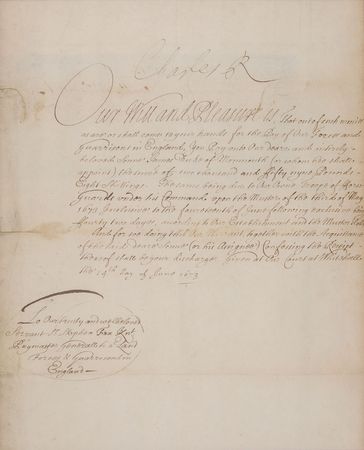 Charles R
Our Will and Pleasure is, That out of such monies
as are or shall come to your hands for the Pay of Our Forces and
Guarrisons in England, You Pay unto Our Deare and intirely
beloved Sonne James Duke of Monmouth (or whom he shall
appoint) the sum of two thousand and fifty nyne Pounds
Eight Shillings. The same being due to Our Owne Troope of Horse
Guards under his Command upon the Muster of the third of May
1673 Inclusive to the fourteenth of June following exclusive
fforty two dayes, according to the Establishment and the Muster Rolls
And for so doing this together with the Acquittance
of the said Deare Sonne (or his Assignes) Confessing the Receipt
thereof shall be your discharge. Given at Our Court at Whitehall
the 14th Day of June 1673
To Our trusty and welbeloved
Servant Sr. Stephen Fox Knt.
Paymaster Generall to Land
Forces & Guarrisons in
England